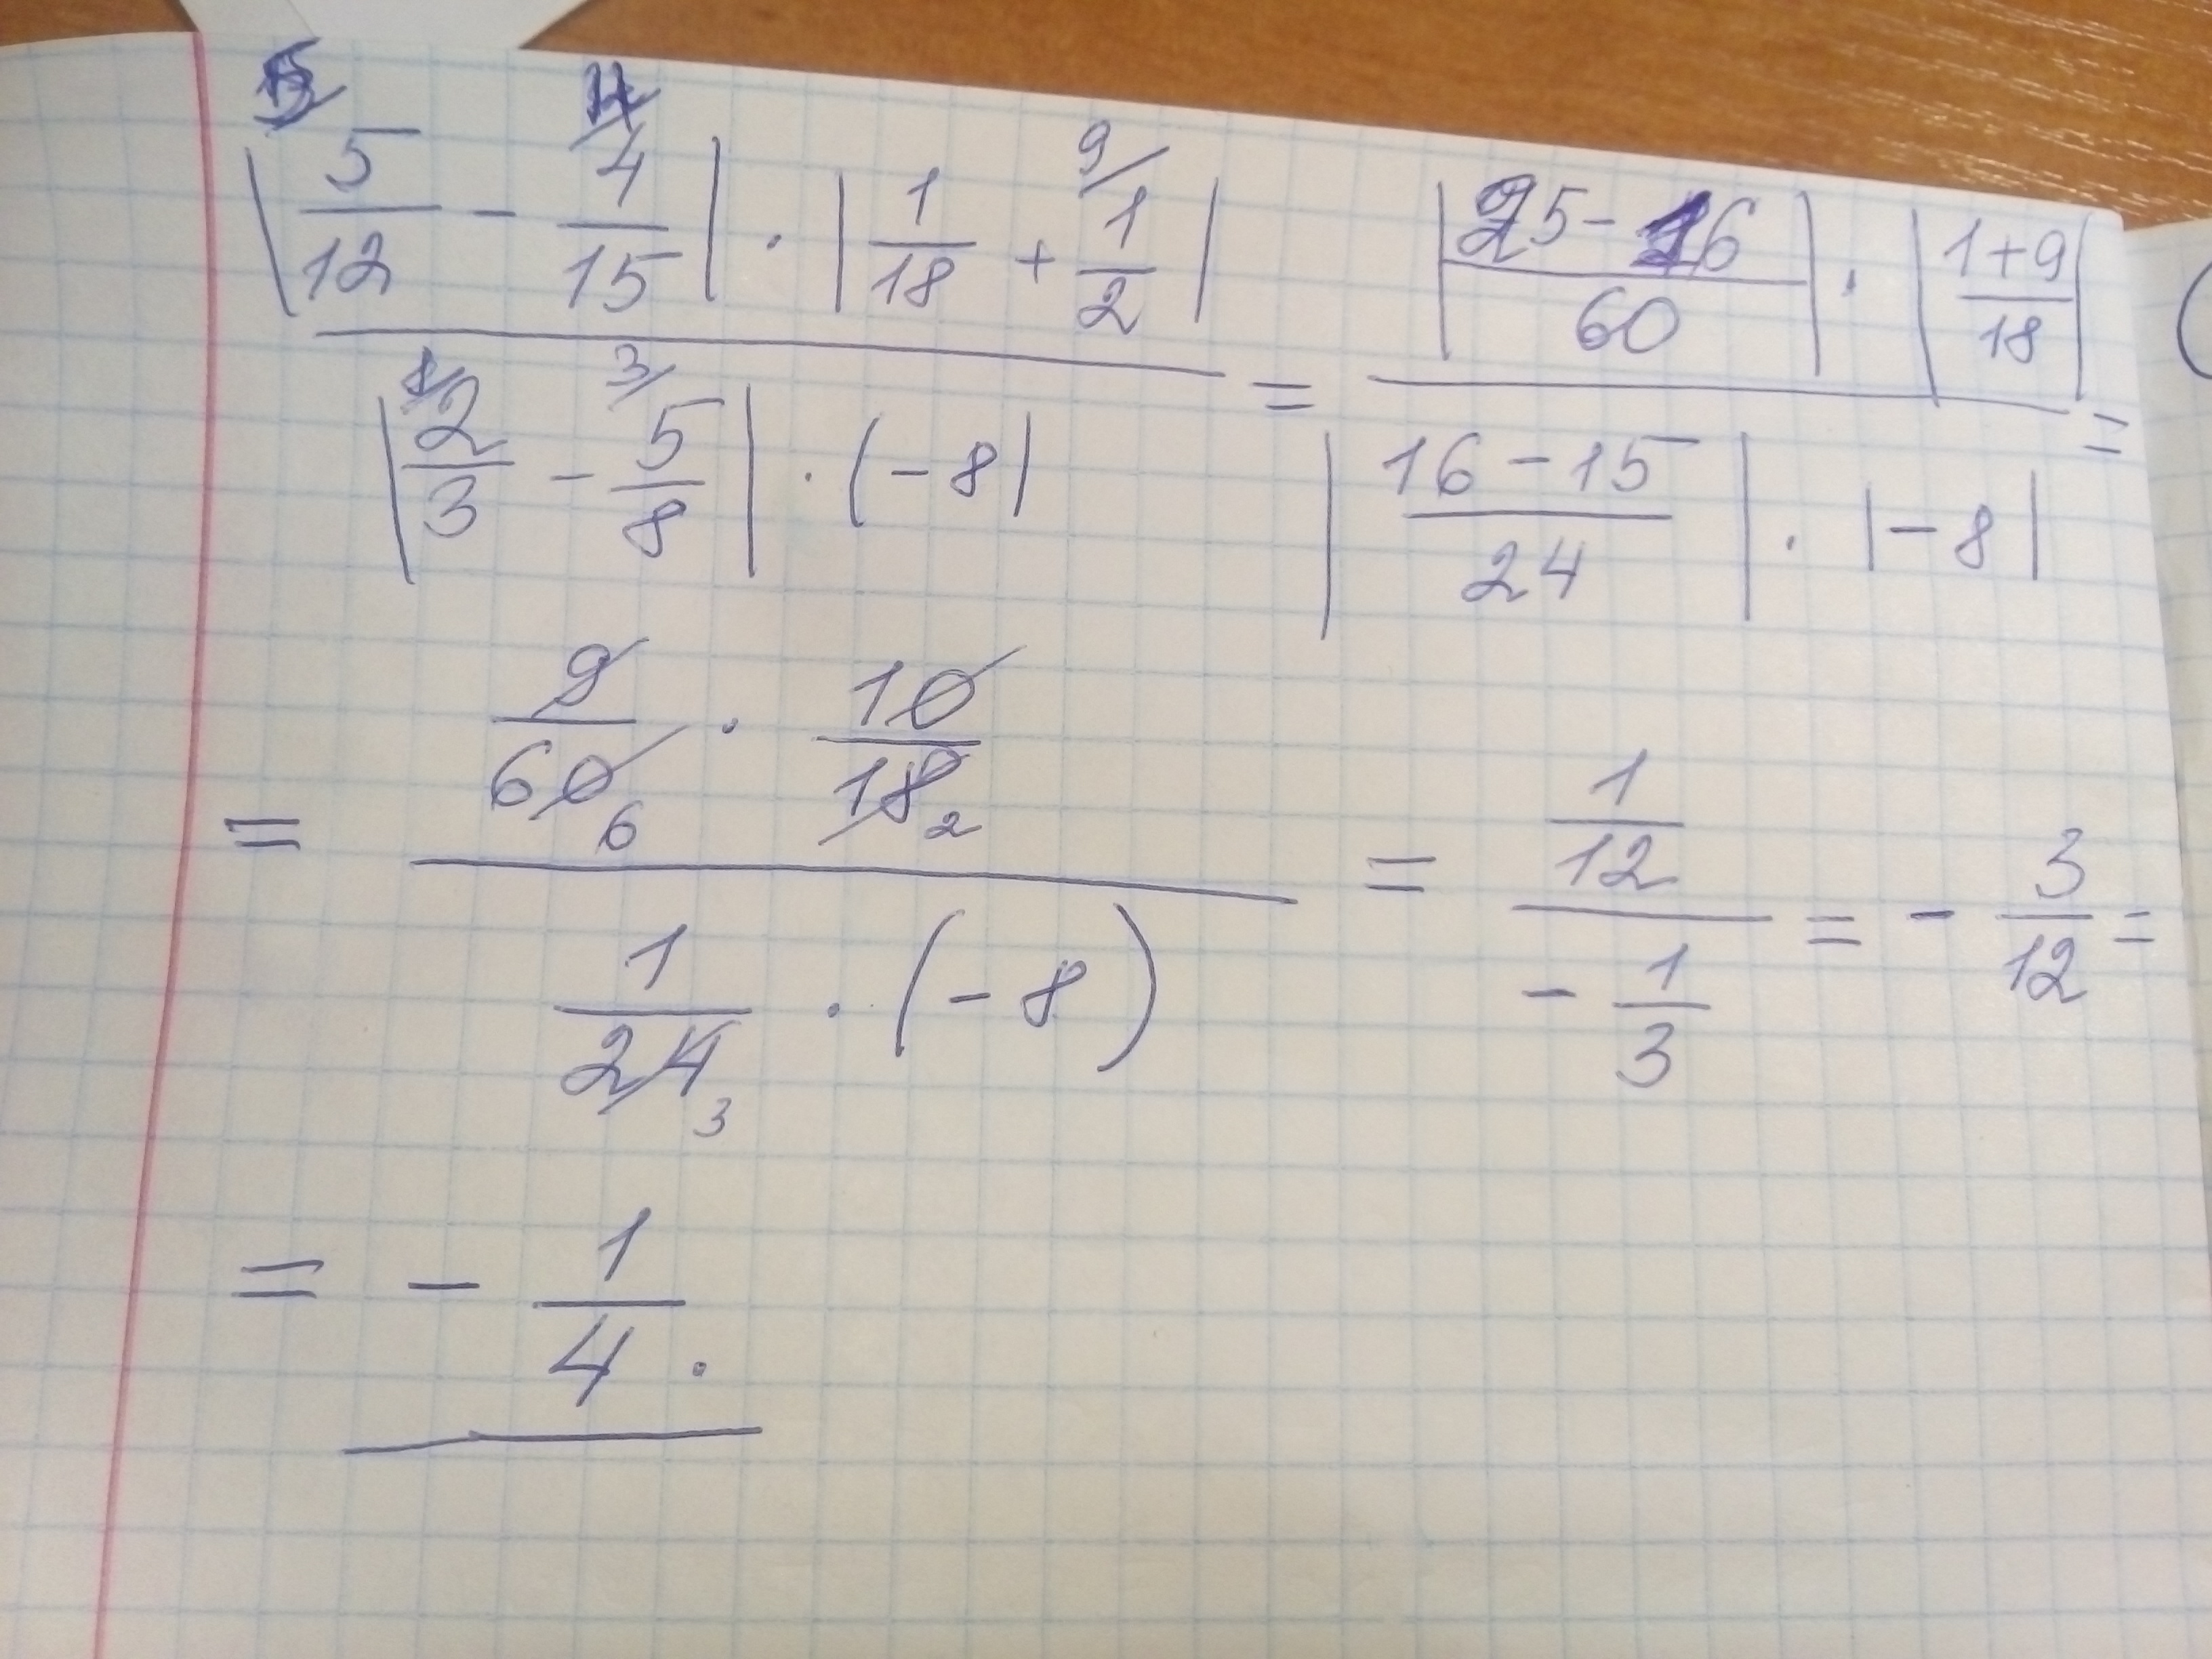 |5/12 - 4/15| · |1/18 + 9/ 1/2| / |2/3 - 3/ 5/8| · (-8| = |25-16/60| · |1+9/18| / |16-15/24| · |-8| =
= 9/60 6 · 10/18 2 / 1/24 3 · (-8) = 1/12 / -1/3 = - 3/12 =
= - 1/4 .